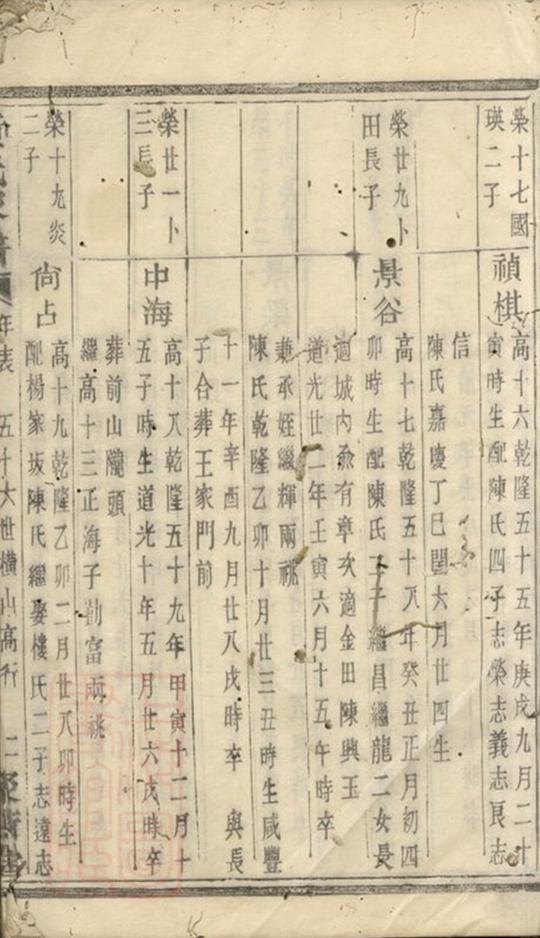 榮十七國
瑛二子
禎棋
高十六乾隆五十五年庚戌九月二十
寅時生配陳氏四子志榮志義志良志
信
陳氏嘉慶丁巳閏六月廿四生
榮廿九卜
田長子
景谷
高十七乾隆五十八年癸丑正月初四
卯時生配陳氏二子繼昌繼龍二女長
適城內俞有章次適金田陳興玉
道光廿二年壬寅六月十五午時卒
兼承姪繼輝兩祧
陳氏乾隆乙卯十月廿三丑時生咸豐
十一年辛酉九月廿八戌時卒 與長
子合葬王家門前
榮廿一卜
三長子
中海
高十八乾隆五十九年甲寅十二月十
五子時生道光十年五月廿六戌時卒
葬前山隴頭
繼高十三正海子勤富兩祧
榮十九炎
二子
尙占
高十九乾隆乙卯二月廿八卯時生
配楊家坂陳氏繼娶樓氏二子志遠志
年表 五十六世橫山高行 二